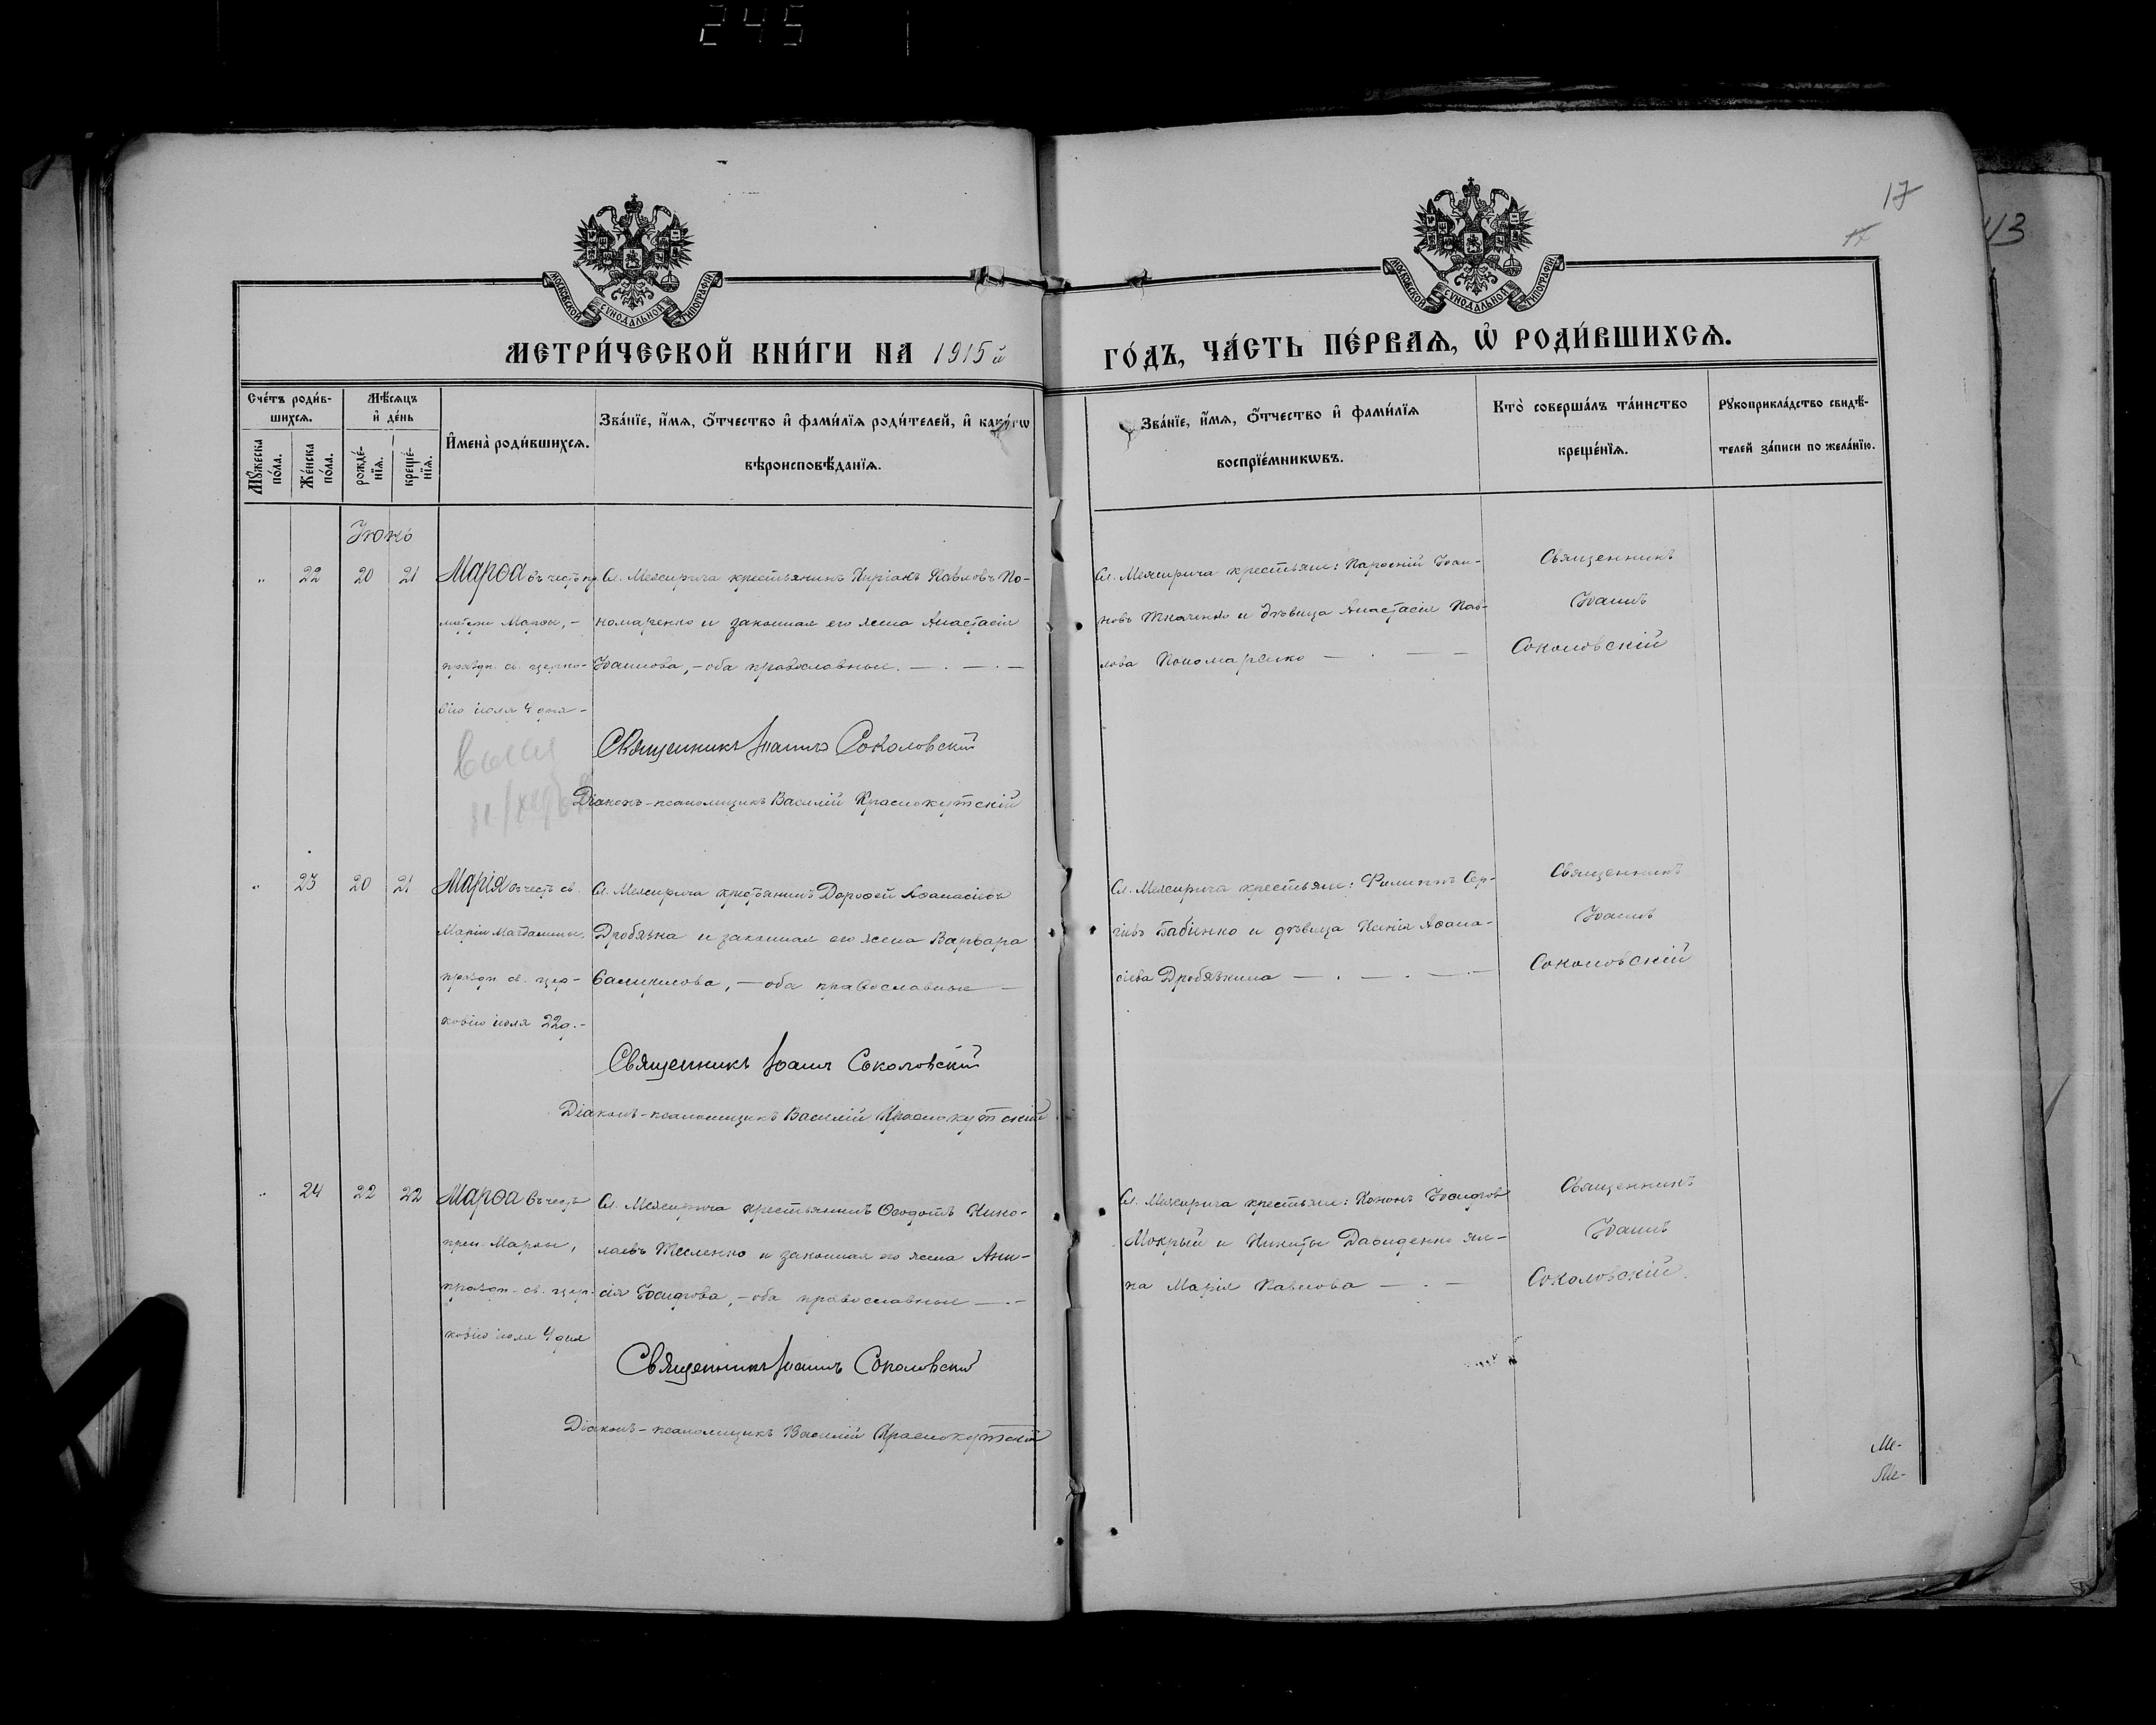 245
17
17
43
МОСКОВСКОЙ СѴНОДАЛЬНОЙ ТИПОГРАФІИ
МОСКОВСКОЙ СѴНОДАЛЬНОЙ ТИПОГРАФІИ
МЕТРИ́ЧЕСКОЙ КНИ́ГИ НА 1915й
ГО́ДЪ, ЧА́СТЬ ПЕ́РВАѦ, Ѡ҆ РОДИ́ВШИХСѦ.
Сче́тъ роди́в-
шихсѧ.
Мꙋ́жеска
по́ла.
Же́нска
по́ла.
Мѣ́сѧцъ
и҆ де́нь
рожде́-
нїѧ.
креще́-
нїѧ.
И҆мена̀ роди́вшихсѧ.
Зва́нїе, и҆́мѧ, ѻ҆́тчество и҆ фами́лїѧ роди́телей, и҆ како́гѡ
вѣроисповѣ́данїѧ.
Зва́нїе, и҆́мѧ, ѻ҆́тчество и҆ фами́лїѧ
воспрїе́мникѡвъ.
Кто̀ соверша́лъ та́инство
креще́нїѧ.
Рꙋкоприкла́дство свидѣ́-
телей за́писи по жела́нїю.
Іюнь
„ 22 20 21
Марѳа въ честь пр.
матери Марѳы, -
праздн. св. церко-
вію іюля 4 дня -
Сл. Межирича крестьянинъ Киріакъ Павловъ По-
номаренко и законная его жена Анастасія
Іоаннова, - оба православные.
Священникъ Іоаннъ Соколовскій
Діаконъ-псаломщикъ Василій Краснокутскій
Сл. Межирича крестьяне: Парѳеній Іоан-
новъ Ткаченко и дѣвица Анастасія Пав-
лова Пономаренко
Священникъ
Іоаннъ
Соколовскій
„ 23 20 21
Марія въ честь св.
Маріи Магдалины,
праздн. св. цер-
ковію іюля 22 д. -
Сл. Межирича крестьянинъ Дороѳей Аѳанасіевъ
Дробязка и законная его жена Варвара
Самуилова, - оба православные
Священникъ Іоаннъ Соколовскій
Діаконъ-псаломщикъ Василій Краснокутскій
Сл. Межирича крестьяне: Филиппъ Сер-
гіевъ Бабенко и дѣвица Ксенія Аѳана-
сіева Дробязкина
Священникъ
Іоаннъ
Соколовскій
„ 24 22 22
Марѳа въ честь
преп. Марѳы,
праздн. св. цер-
ковію іюля 4 дня
Сл. Межирича крестьянинъ Ѳеодотъ Нико-
лаевъ Тесленко и законная его жена Ани-
сія Іосифова, - оба православные
Священникъ Іоаннъ Соколовскій
Діаконъ-псаломщикъ Василій Краснокутскій
Сл. Межирича крестьяне: Кононъ Іосифовъ
Мокрый и Никиты Давиденко же-
на Марія Павлова
Священникъ
Іоаннъ
Соколовскій.
Ме-
Ме-